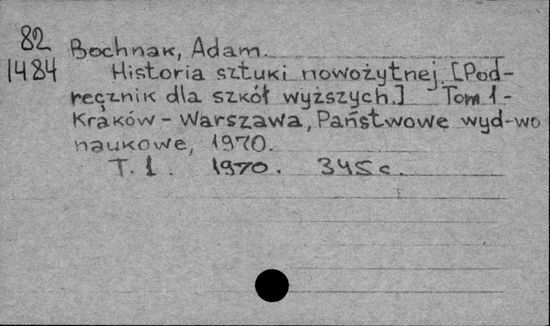 82 Bochnak, Adam.
1484 Historia sztuki nowożytnej. [Pod-
ręcznik dla szkół wyższych.] Tom 1-
Kraków - Warszawa, Państwowe wyd-wo
naukowe, 1970.
T. 1. 1970. 345 c.